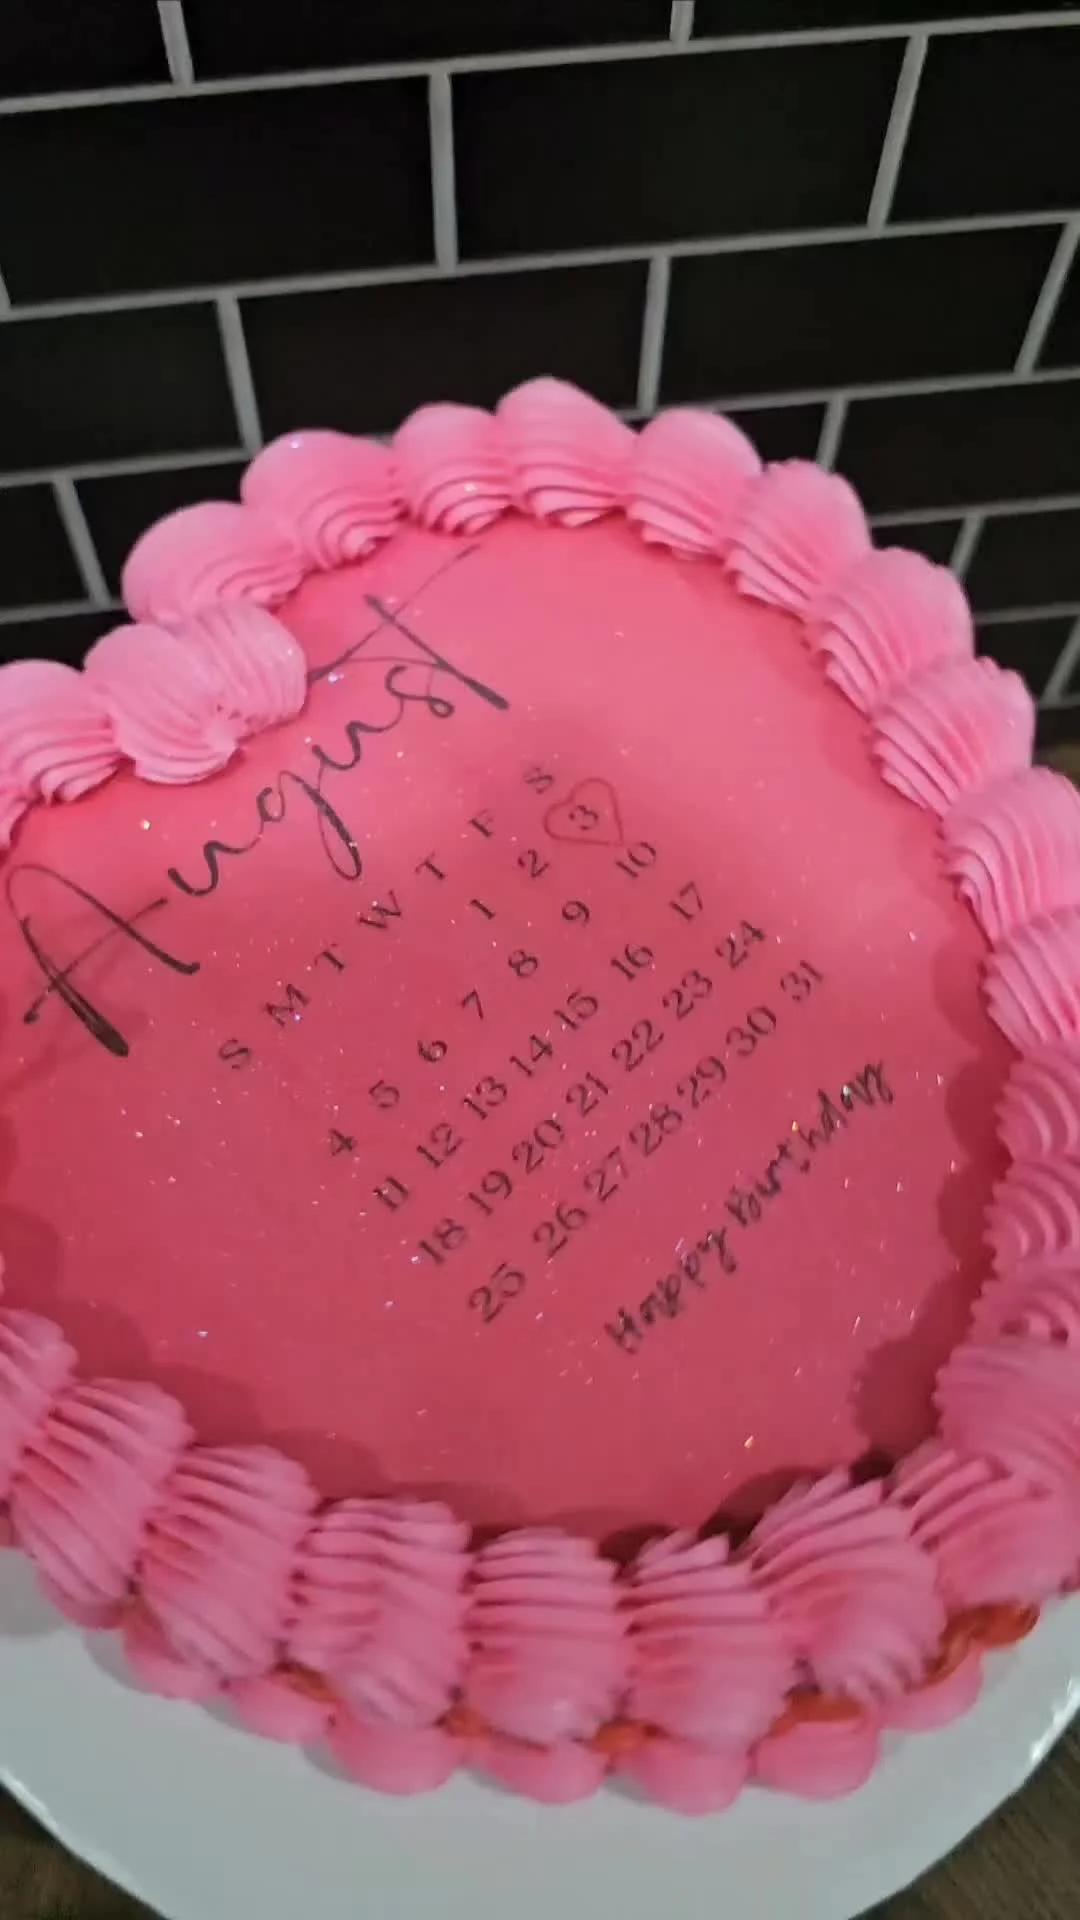 August
S M T W T F S
1 2 3
4 5 6 7 8 9 10
11 12 13 14 15 16 17
18 19 20 21 22 23 24
25 26 27 28 29 30 31
Happy Birthday